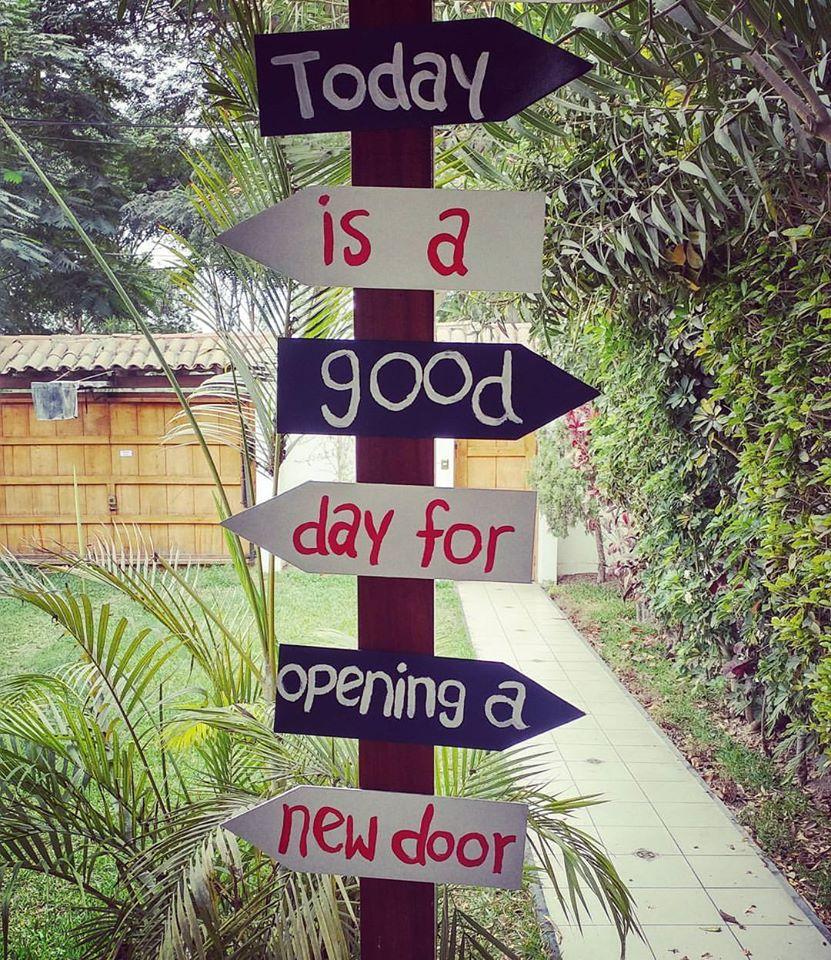 Today
is a
good
day for
opening a
new door